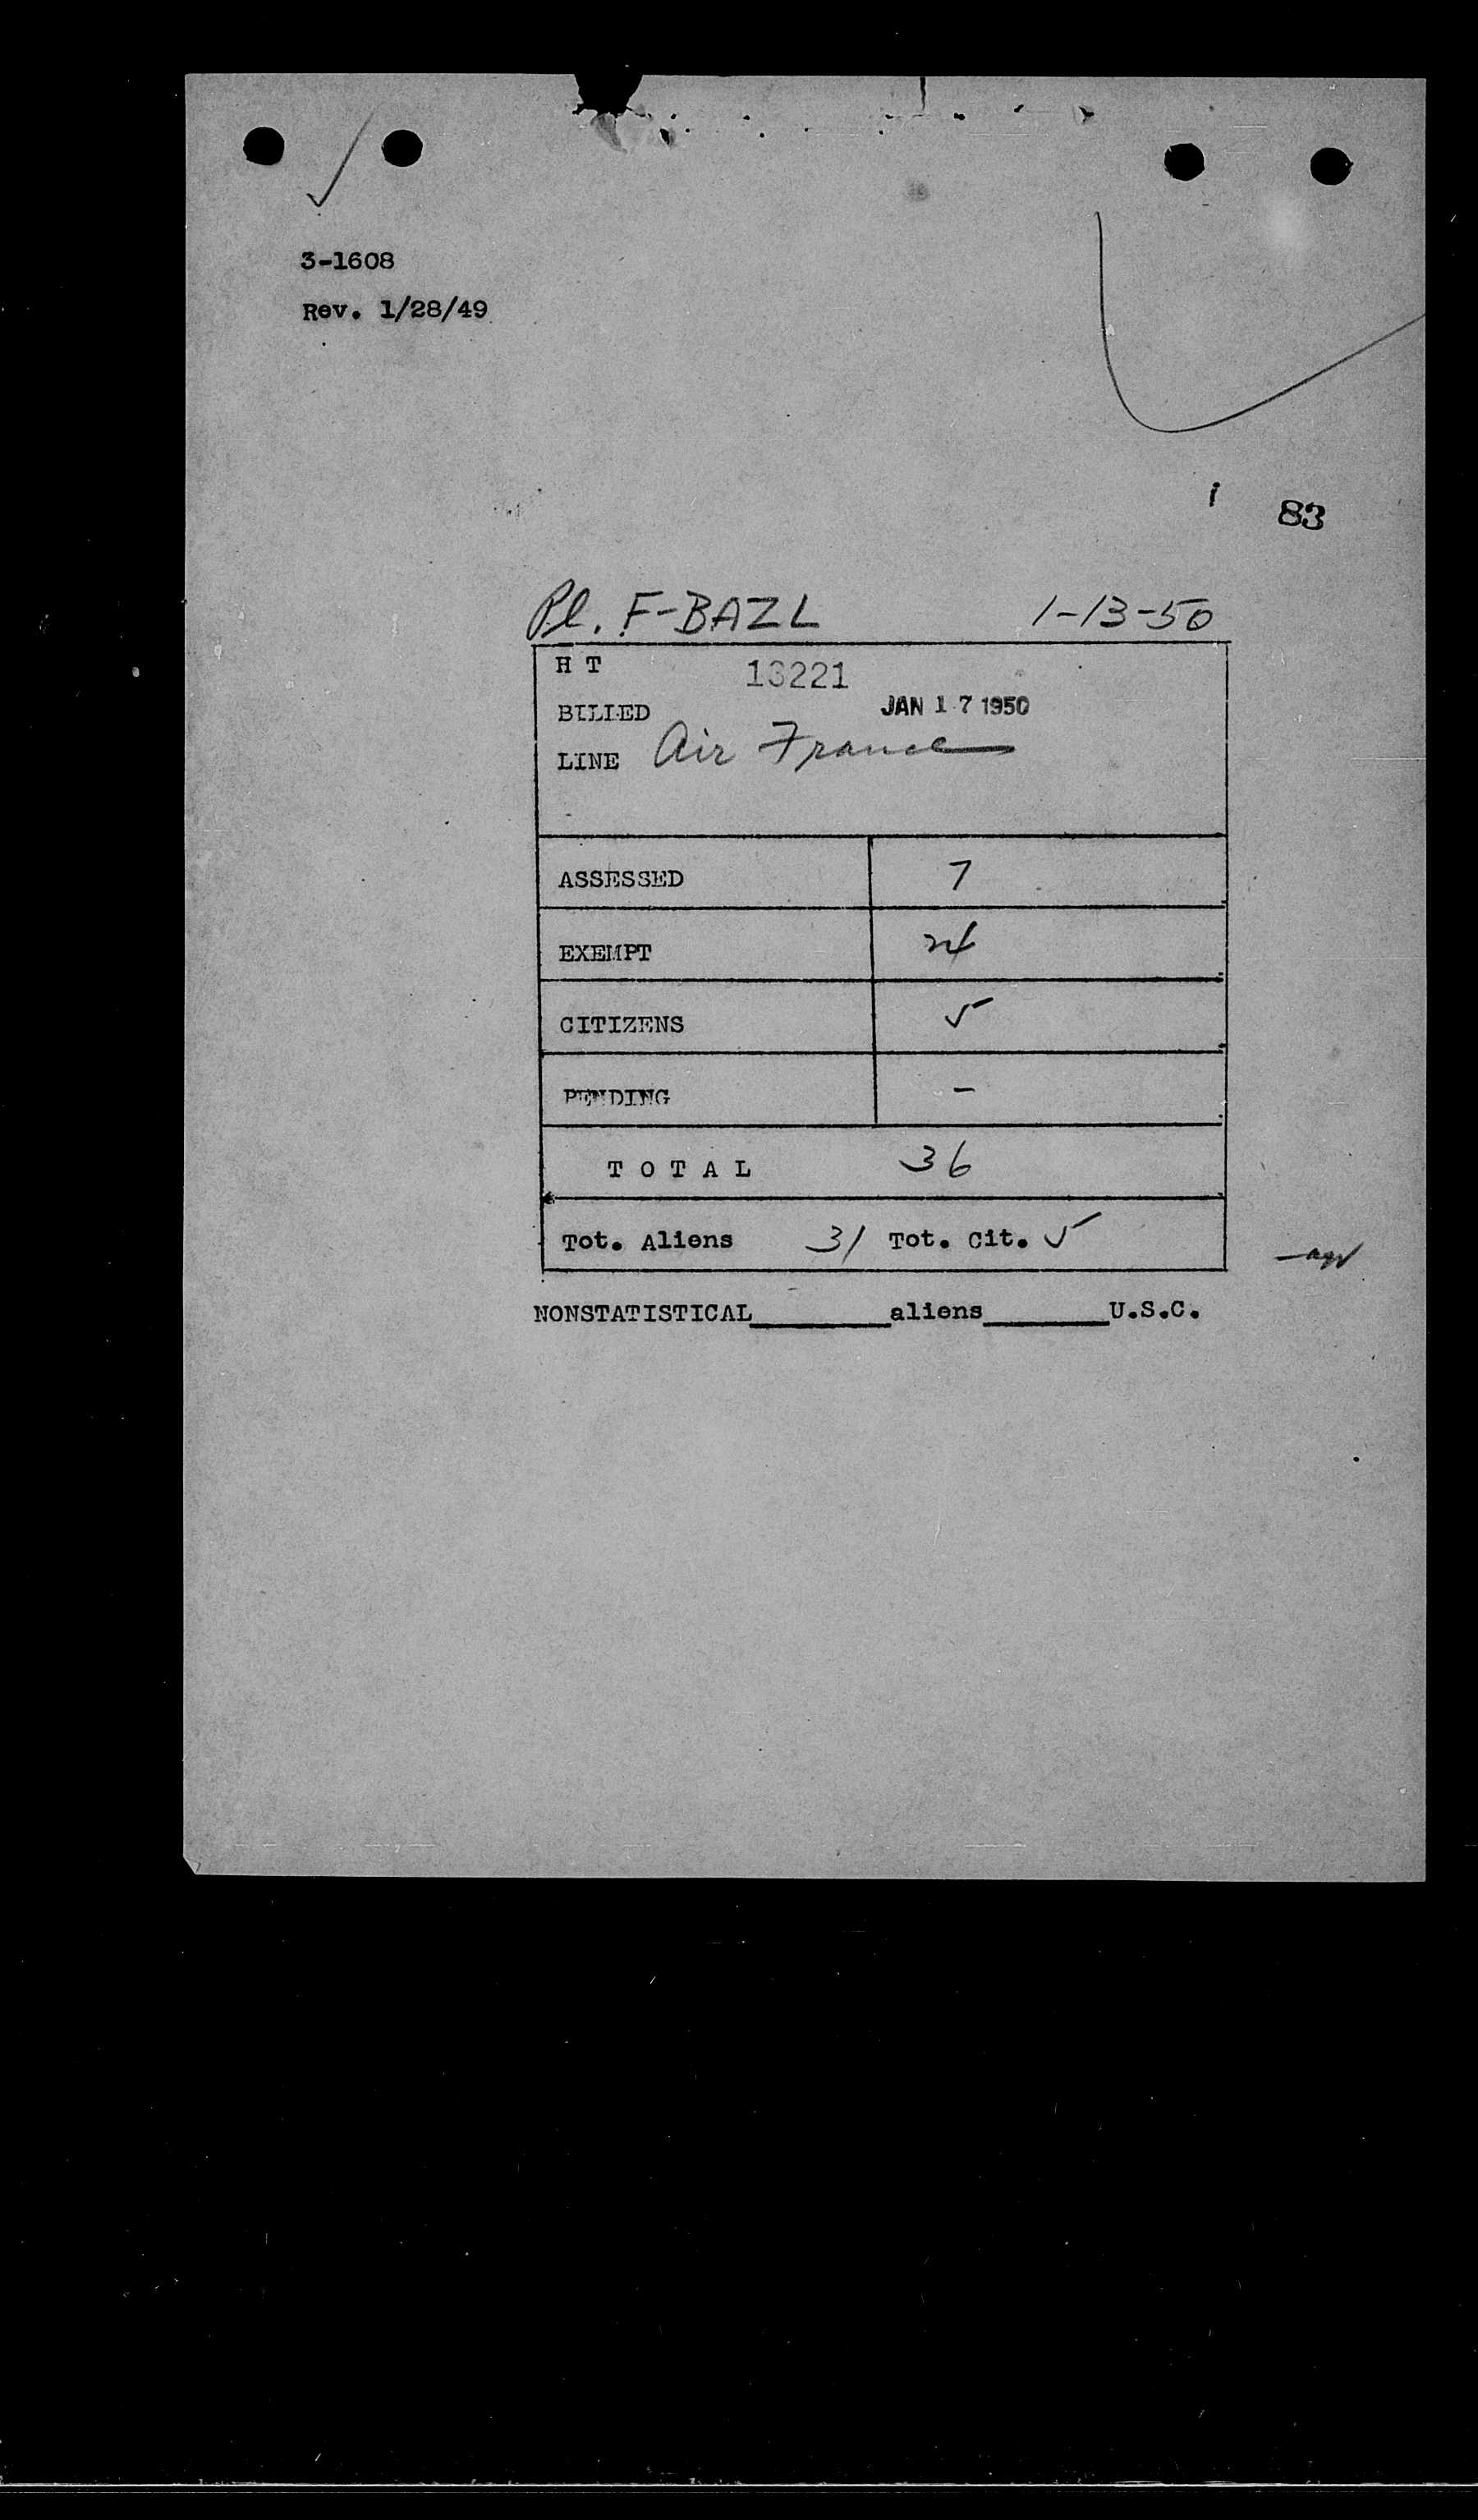 3-1608
Rev. 1/28/49
83
Pl. F-BAZL 1-13-50
H T 13221
BILLED JAN 17 1950
LINE Air France
ASSESSED 7
EXEMPT 24
CITIZENS 5
PENDING -
T O T A L 36
Tot. Aliens 31 Tot. Cit. 5
NONSTATISTICAL________aliens_______U.S.C.